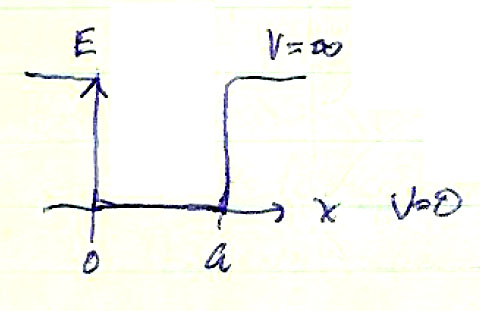 E V=∞
x V=0
0 a